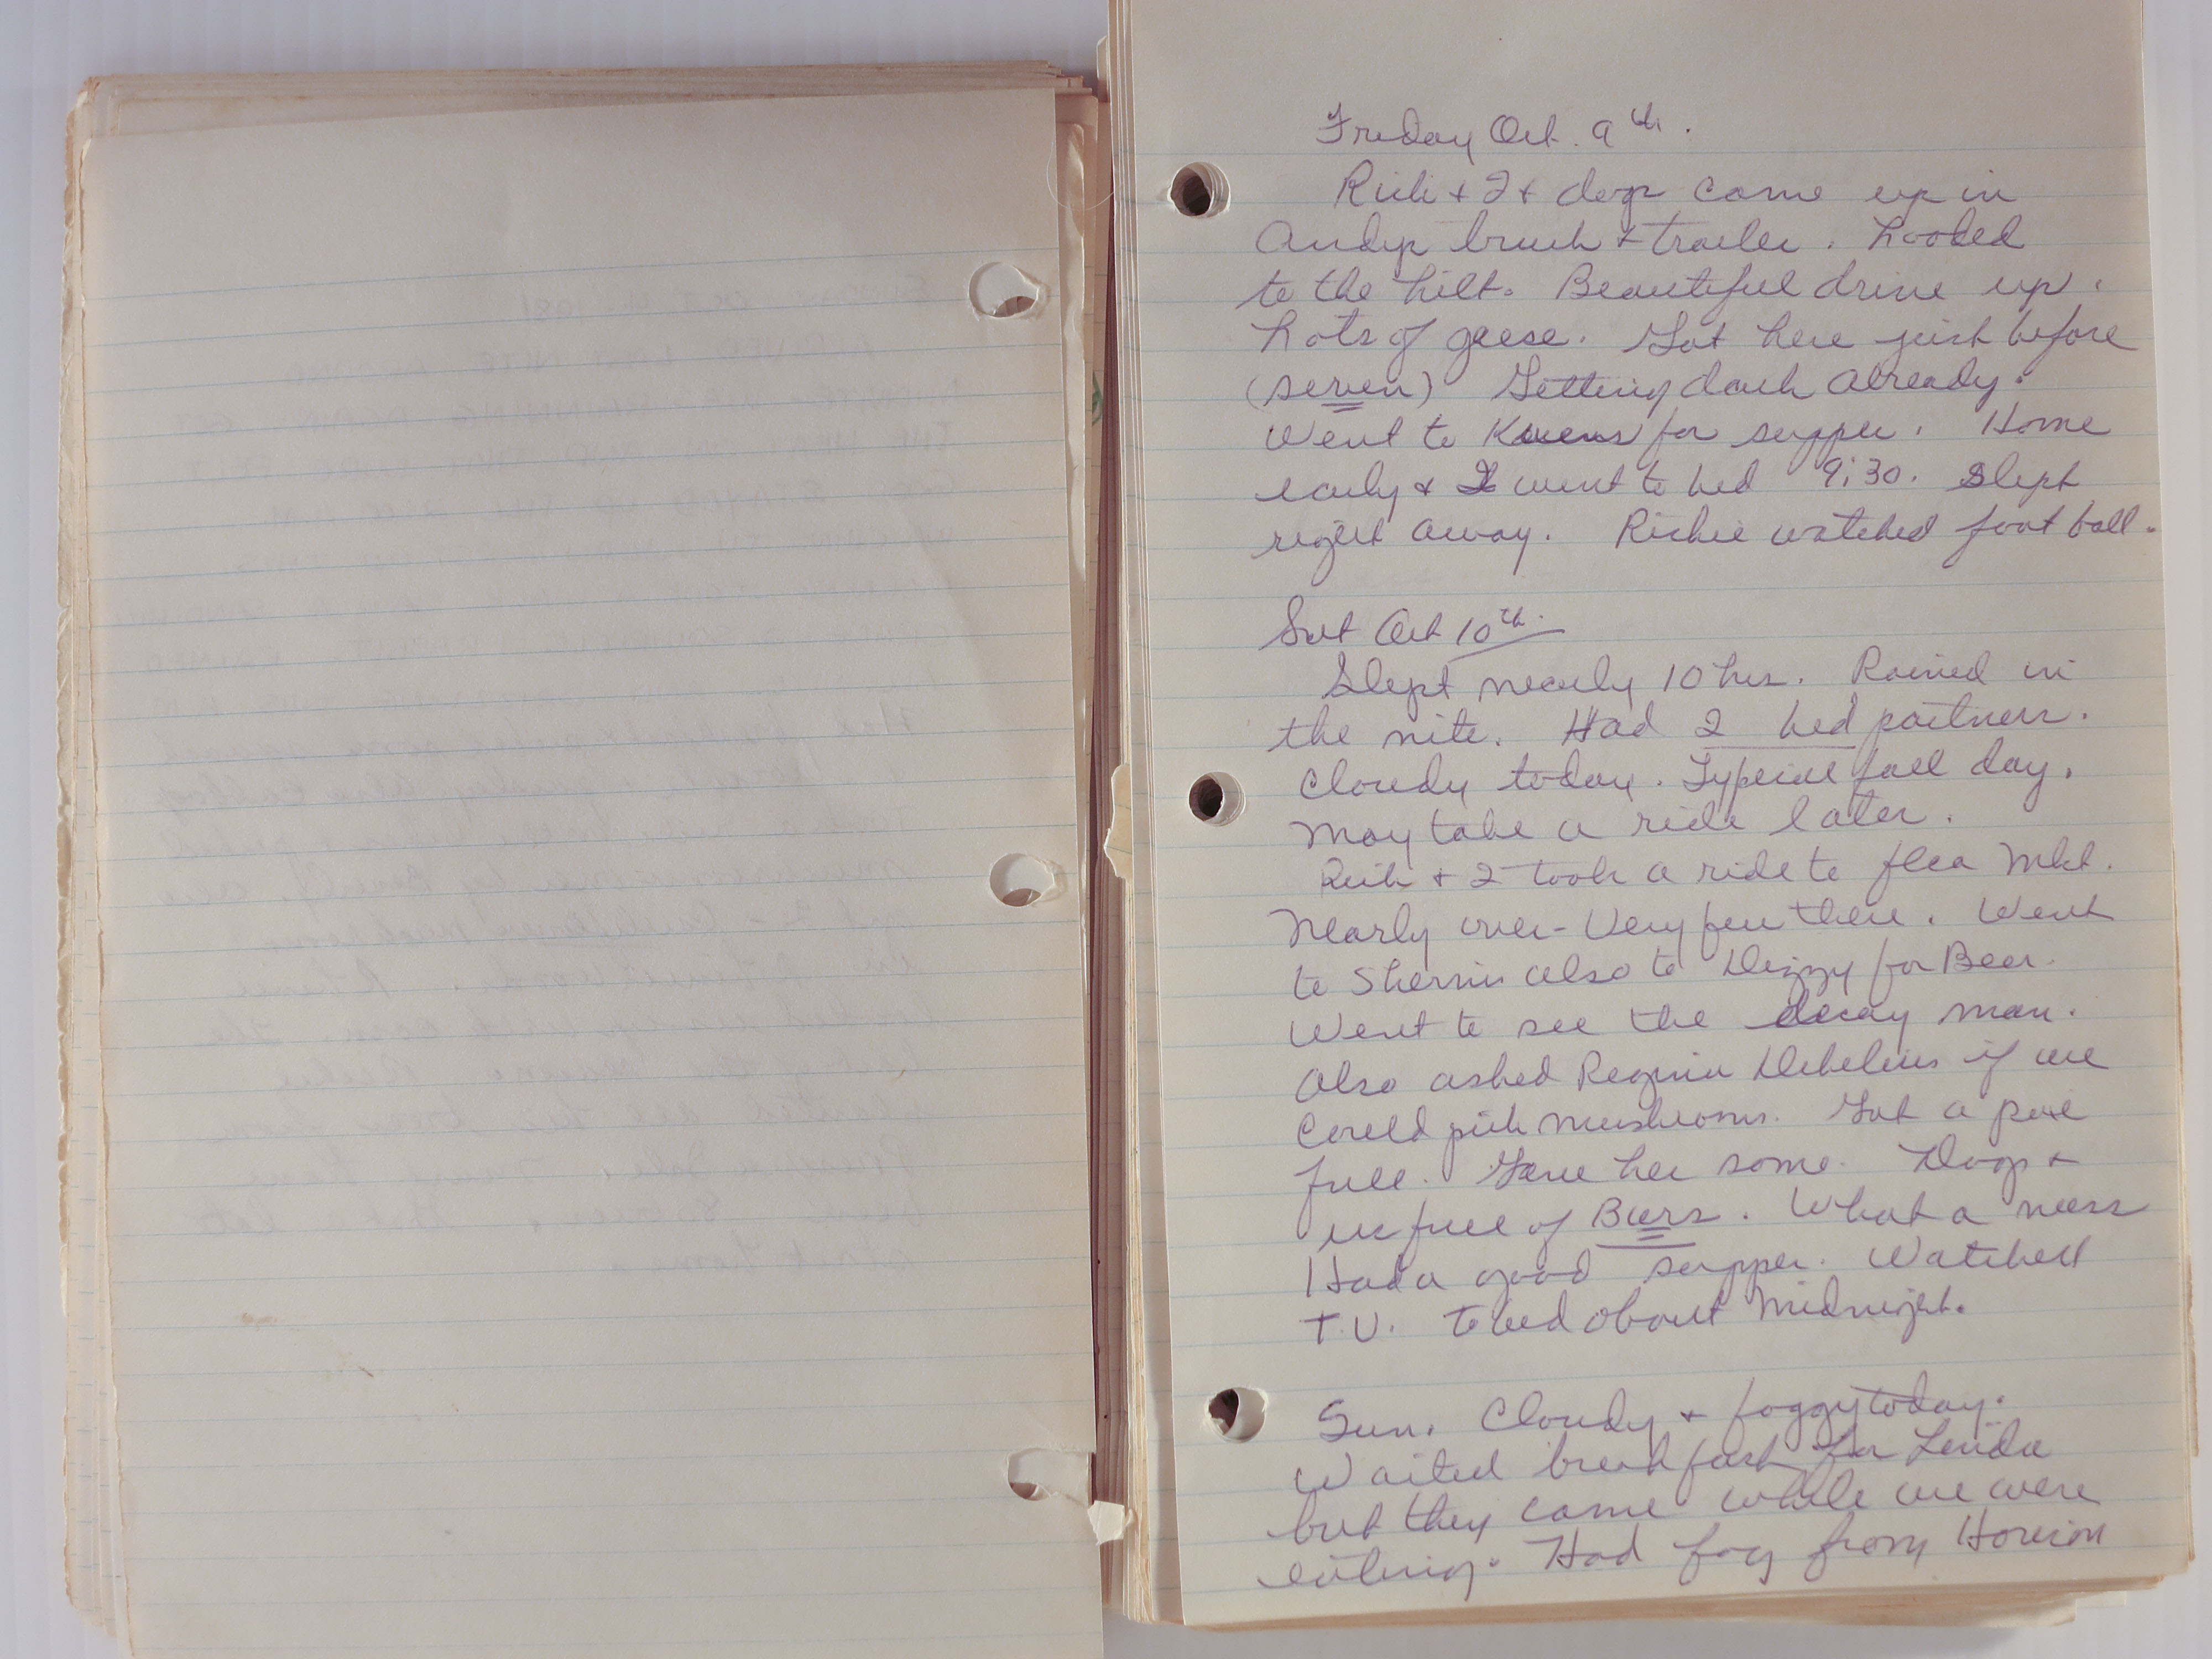 Friday Oct. 9th.
Rich + I + dogs came up in
Andys truck + trailer. Loaded
to the hilt. Beautiful drive up.
Lots of geese. Got here just before
(seven) Getting dark already.
Went to for supper. Home
early & I went to bed 9:30. Slept
right away. Richie watched foot ball.
Sat Oct 10th.
Slept nearly 10 hrs. Rained in
the nite. Had 2 bed partners.
Cloudy today. Typical fall day.
May take a ride later.
Rich + I took a ride to flea Mkt.
Nearly over - Very few there. Went
to also to Dizzy for Beer.
Went to see the decoy man.
Also asked Regina if we
could pick mushrooms. Got a pail
full. Gave her some. Dogs +
us full of Burs. What a mess
Had a good supper. Watched
T.V. To bed about Midnight.
Sun. Cloudy + foggy today.
Waited breakfast for Linda
but they came while we were
eating. Had fog from Horicon